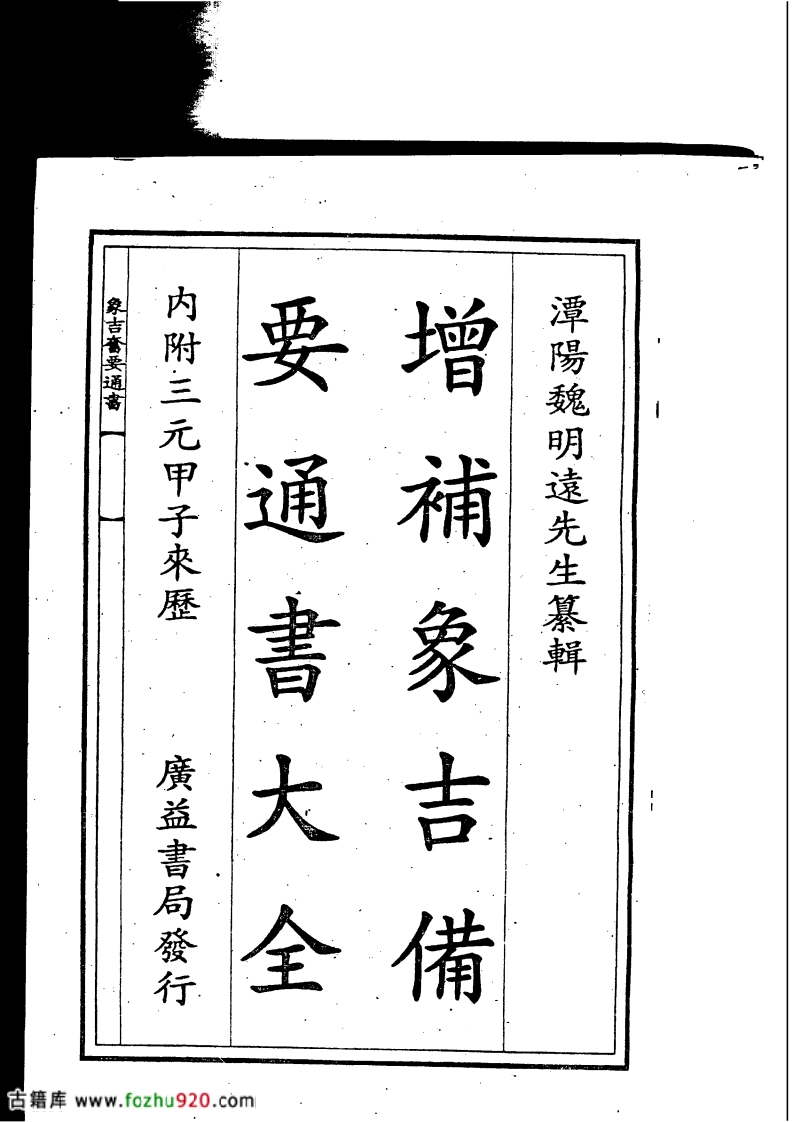 潭陽魏明遠先生纂輯
增補象吉備
要通書大全
內附三元甲子來歷
廣益書局發行
象吉 要通書
古籍库 www.fozhu920.com